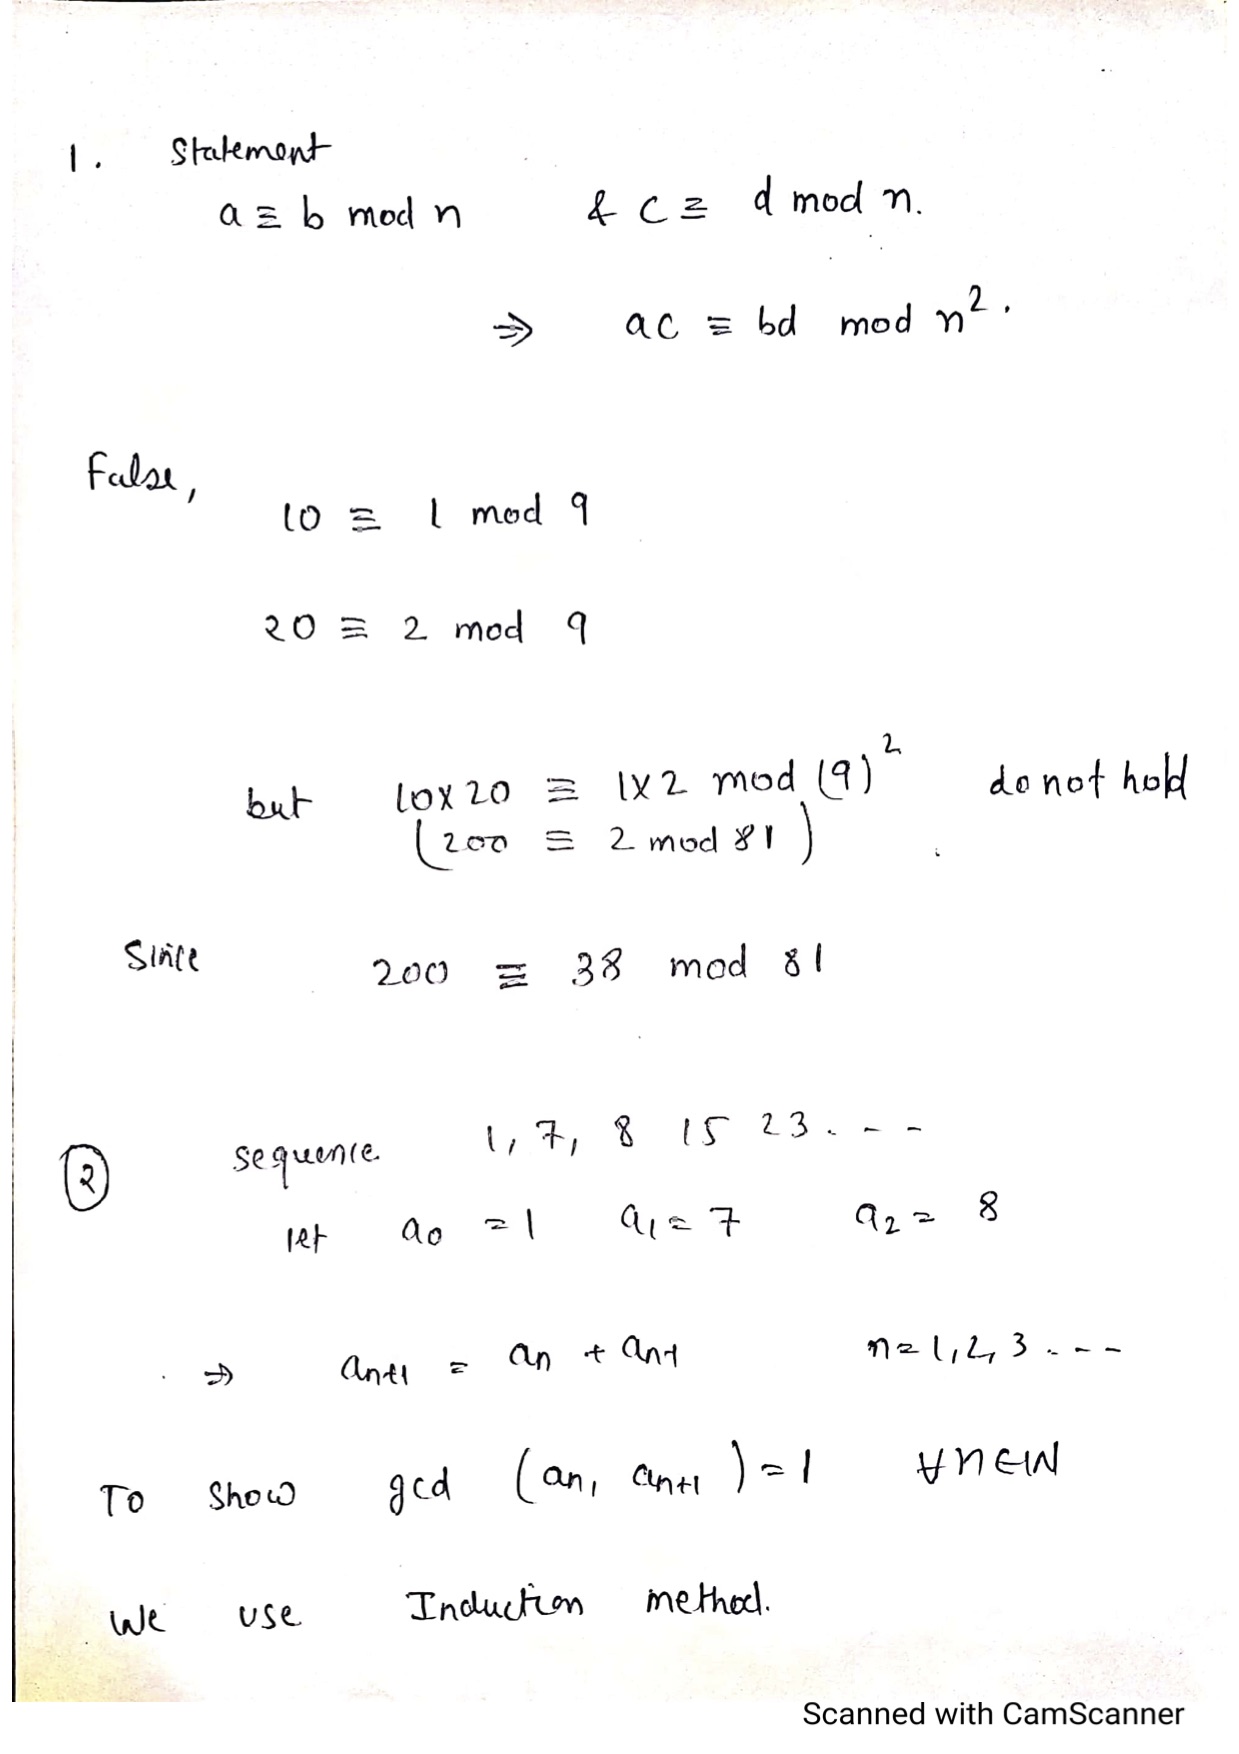 1. Statement
a ≡ b mod n & c ≡ d mod n.
⇒ ac ≡ bd mod n².
False,
10 ≡ 1 mod 9
20 ≡ 2 mod 9
but 10×20 ≡ 1×2 mod (9)² do not hold
(200 ≡ 2 mod 81)
Since 200 ≡ 38 mod 81
② sequence 1, 7, 8 15 23. - - -
let a₀ = 1 a₁ = 7 a₂ = 8
⇒ aₙ₊₁ = aₙ + aₙ₋₁ n = 1, 2, 3 - - -
To show gcd (aₙ, aₙ₊₁) = 1 ∀ n ∈ ℕ
We use Induction method.
Scanned with CamScanner